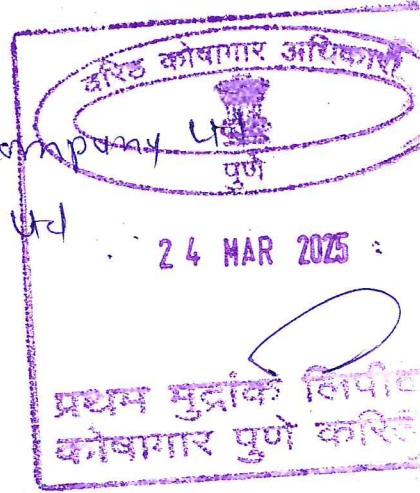 वरिष्ठ कोषागार अधिकारी
ompany Ltd
पुणे
Ltd
24 MAR 2025
प्रथम मुद्रांक लिपीक
कोषागार पुणे करिता